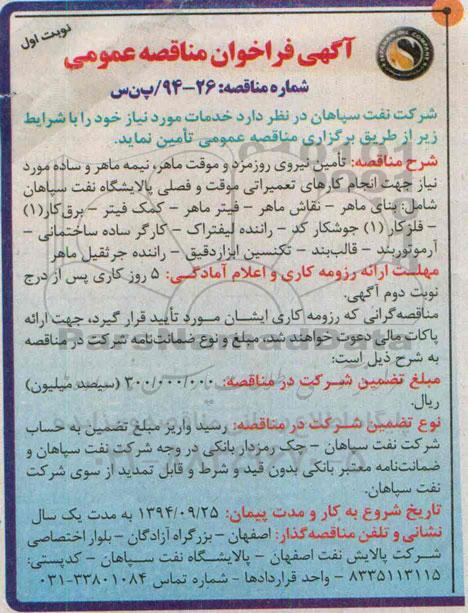 نوبت اول
SEPAHAN OIL COMPANY
آگهی فراخوان مناقصه عمومی
شماره مناقصه: ۲۶-۹۴/پ‌ن‌س
شرکت نفت سپاهان در نظر دارد خدمات مورد نیاز خود را با شرایط
زیر از طریق برگزاری مناقصه عمومی تأمین نماید.
شرح مناقصه: تأمین نیروی روزمزد و موقت ماهر، نیمه ماهر و ساده مورد
نیاز جهت انجام کارهای تعمیراتی موقت و فصلی پالایشگاه نفت سپاهان
شامل: بنای ماهر - نقاش ماهر - فیتر ماهر - کمک فیتر - برق‌کار(۱)
- فلزکار (۱) جوشکار کد - راننده لیفتراک - کارگر ساده ساختمانی -
آرموتوربند - قالب‌بند - تکنسین ابزاردقیق - راننده جرثقیل ماهر
مهلت ارائه رزومه کاری و اعلام آمادگی: ۵ روز کاری پس از درج
نوبت دوم آگهی.
مناقصه‌گرانی که رزومه کاری ایشان مورد تأیید قرار گیرد، جهت ارائه
پاکات مالی دعوت خواهند شد، مبلغ و نوع ضمانت‌نامه شرکت در مناقصه
به شرح ذیل است:
مبلغ تضمین شرکت در مناقصه: ۳۰۰/۰۰۰/۰۰۰ (سیصد میلیون)
ریال.
نوع تضمین شرکت در مناقصه: رسید واریز مبلغ تضمین به حساب
شرکت نفت سپاهان - چک رمزدار بانکی در وجه شرکت نفت سپاهان و
ضمانت‌نامه معتبر بانکی بدون قید و شرط و قابل تمدید از سوی شرکت
نفت سپاهان.
تاریخ شروع به کار و مدت پیمان: ۱۳۹۴/۰۹/۲۵ به مدت یک سال
نشانی و تلفن مناقصه‌گذار: اصفهان - بزرگراه آزادگان - بلوار اختصاصی
شرکت پالایش نفت اصفهان - پالایشگاه نفت سپاهان - کدپستی:
۸۳۳۵۱۱۳۱۱۵ - واحد قراردادها - شماره تماس ۳۳۸۰۱۰۸۴-۰۳۱
ParsNamadData